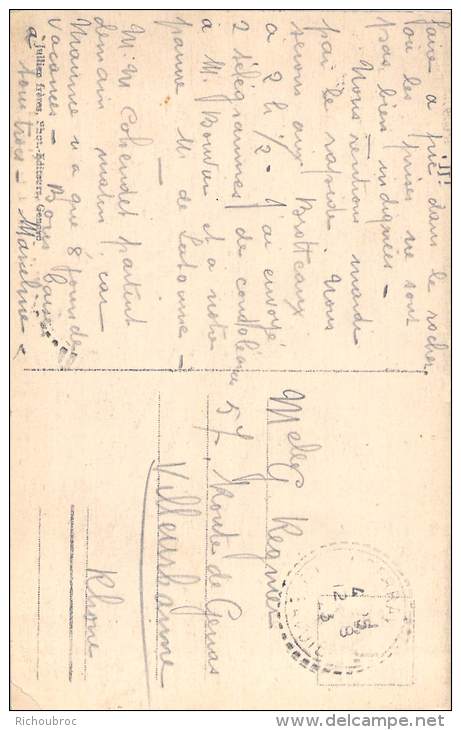 III
faire à pic dans le rocher
ou les prises ne sont
pas bien indiquées -
Nous rentrons mardi
par le rapide nous
serons aux Brotteaux
à 2 h 1/2 - J'ai envoyé
2 télégrammes de condoléances
à M. Bouvier et à notre
pauvre M de
M. M Cohendet partent
demain matin car
Maxime n a que 8 jours de
vacances - Bons baisers
à tous trois - Marceline
Jullien frères, Phot.-Editeurs, Genève
Melle G Regnier
57, Route de Genas
Villeurbanne
Rhône
4 -8
12
Richoubroc
delcampe.net